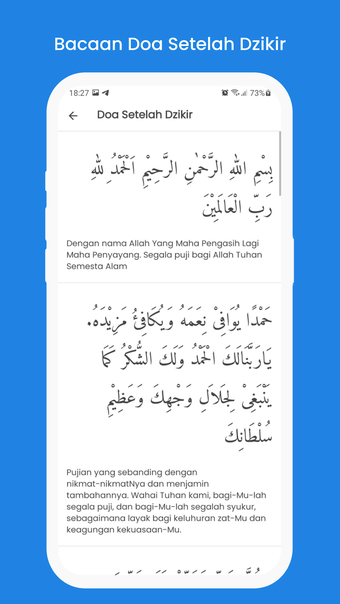 Bacaan Doa Setelah Dzikir
18:27 73%
Doa Setelah Dzikir
بِسْمِ اللهِ الرَّحْمٰنِ الرَّحِيْمِ اَلْحَمْدُ لِلهِ
رَبِّ الْعَالَمِيْنَ
Dengan nama Allah Yang Maha Pengasih Lagi
Maha Penyayang. Segala puji bagi Allah Tuhan
Semesta Alam
حَمْدًا يُوَافِىْ نِعَمَهُ وَيُكَافِئُ مَزِيْدَهُ.
يَارَبَّنَالَكَ الْحَمْدُ وَلَكَ الشُّكْرُ كَمَا
يَنْبَغِىْ لِجَلَالِ وَجْهِكَ وَعَظِيْمِ
سُلْطَانِكَ
Pujian yang sebanding dengan
nikmat-nikmatNya dan menjamin
tambahannya. Wahai Tuhan kami, bagi-Mu-lah
segala puji, dan bagi-Mu-lah segalah syukur,
sebagaimana layak bagi keluhuran zat-Mu dan
keagungan kekuasaan-Mu.